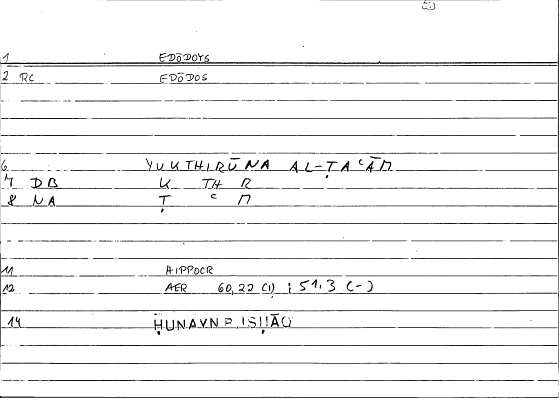 1 EDŌDOYS
2 RC EDŌDOS
6 YUKTHIRŪNA AL-ṬAʿĀM
7 DB K TH R
8 NA Ṭ ʿ M
11 HIPPOCR
12 AER 60,22 (1) ; 51,3 (-)
14 ḤUNAYN B. ISḤĀQ